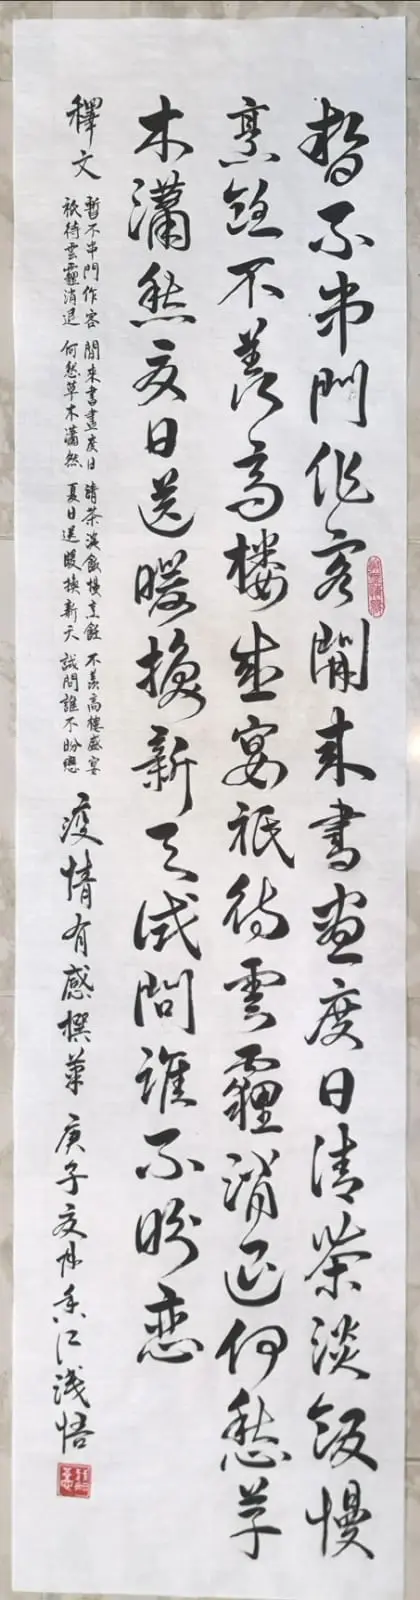 暫不串門作客閒来書画度日清茶淡飯慢
烹飪不羨高樓盛宴祇待雲霾消退何愁草
木瀟然夏日送暖換新天试問誰不盼恋
釋文
暫不串門作客 閒來書畫度日 請茶淡飯慢烹飪 不羨高樓盛宴
祇待雲霾消退 何愁草木瀟然 夏日送暖換新天 誠問誰不盼戀
疫情有感撰華 庚子夏月 江浅悟